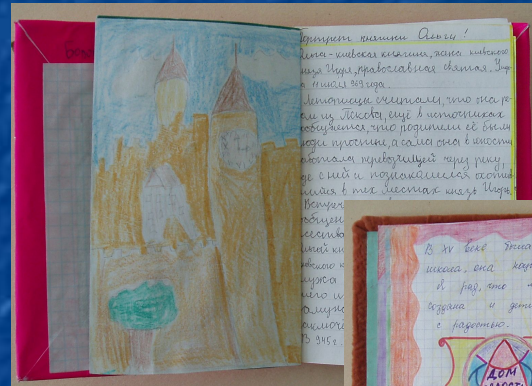 Портрет княгини Ольги!
льга-киевская княгиня, жена киевского
нязя Игоря, православная святая. Умер
а 11 июля 969 года.
Летописцы считали, что она ро
ом из Пскова, ещё в источниках
ообщается, что родители её были
юди простые, а сама она в юности
аботала перевозчицей через реку,
де с ней и познакомился охотив
шийся в тех местах князь Игорь.
Встреч
мужа
него и
замуж
В 945 г.
В XV веке была
школа, она наз
я рад, что
создана и дети
с радостью.
ДОМ